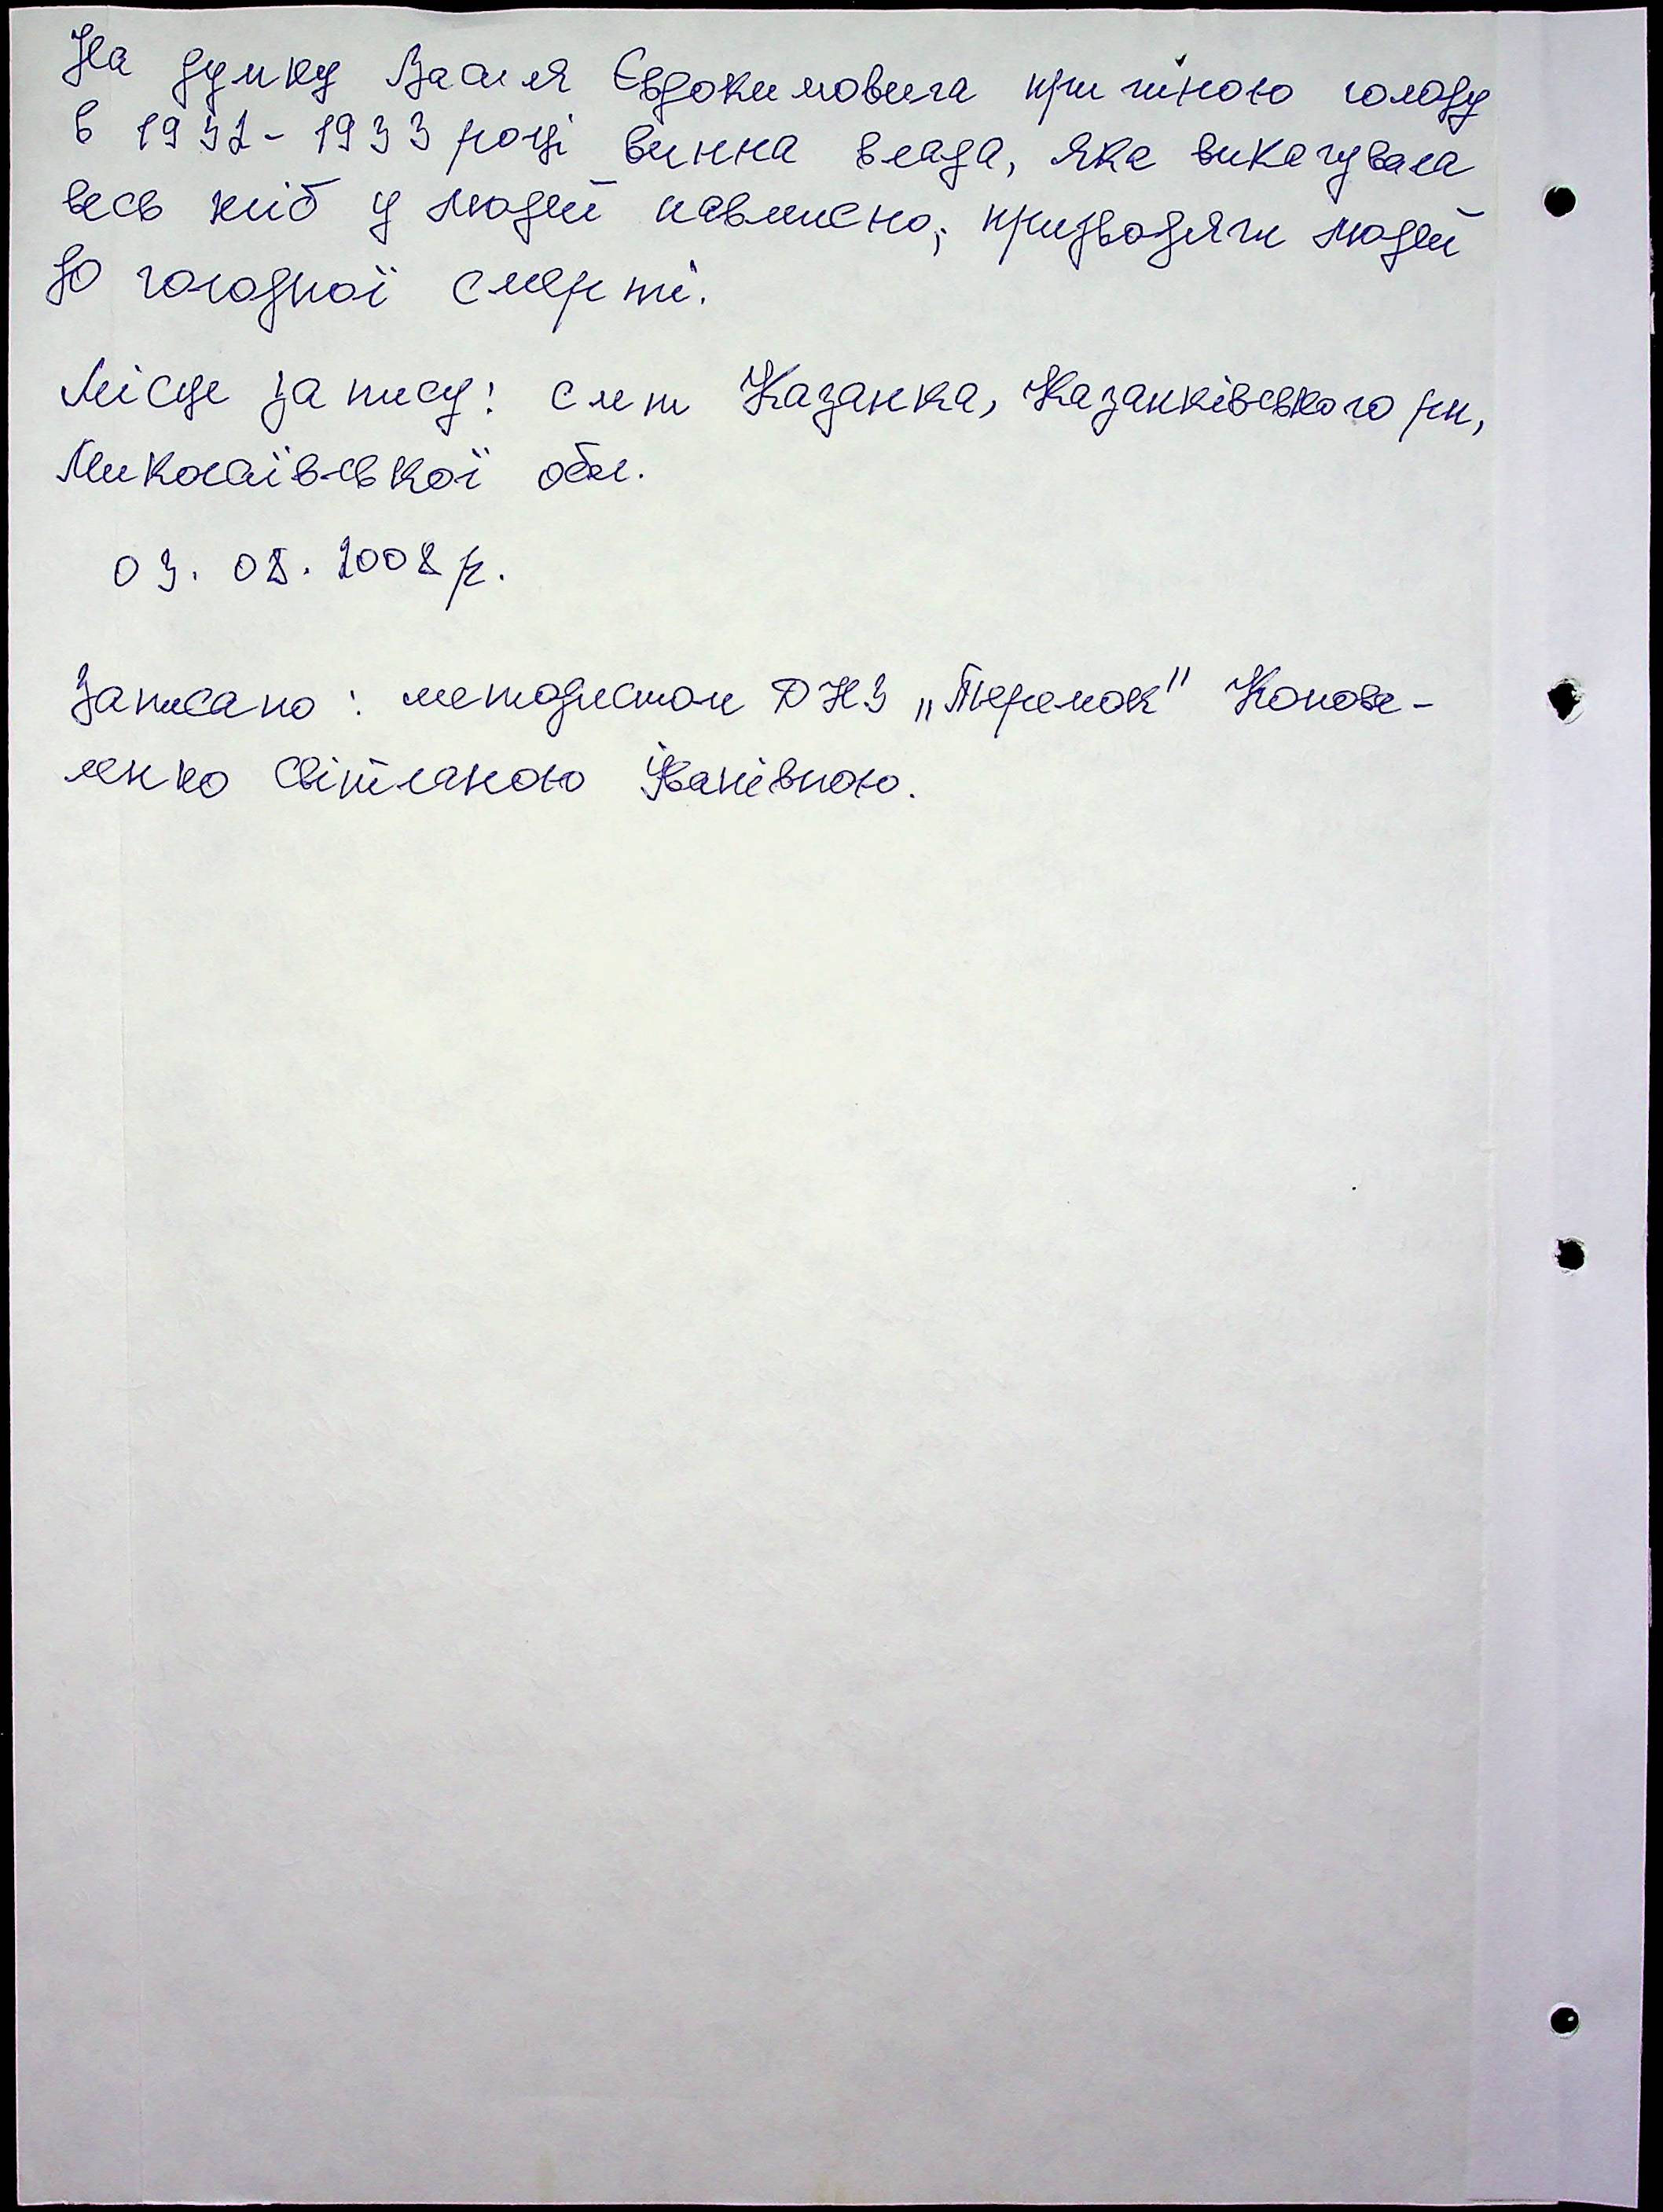 На думку Василя Євдокимовича причіною голоду
в 1932-1933 році винна влада, яка викачувала
весь хліб у людей навмисно, призводячи людей
до голодної смерті.
Місце запису: смт Казанка, Казанківського рн,
Миколаївської обл.
03. 08. 2008 р.
Записано: методистом ДНЗ „Теремок"
Світланою Іванівною.